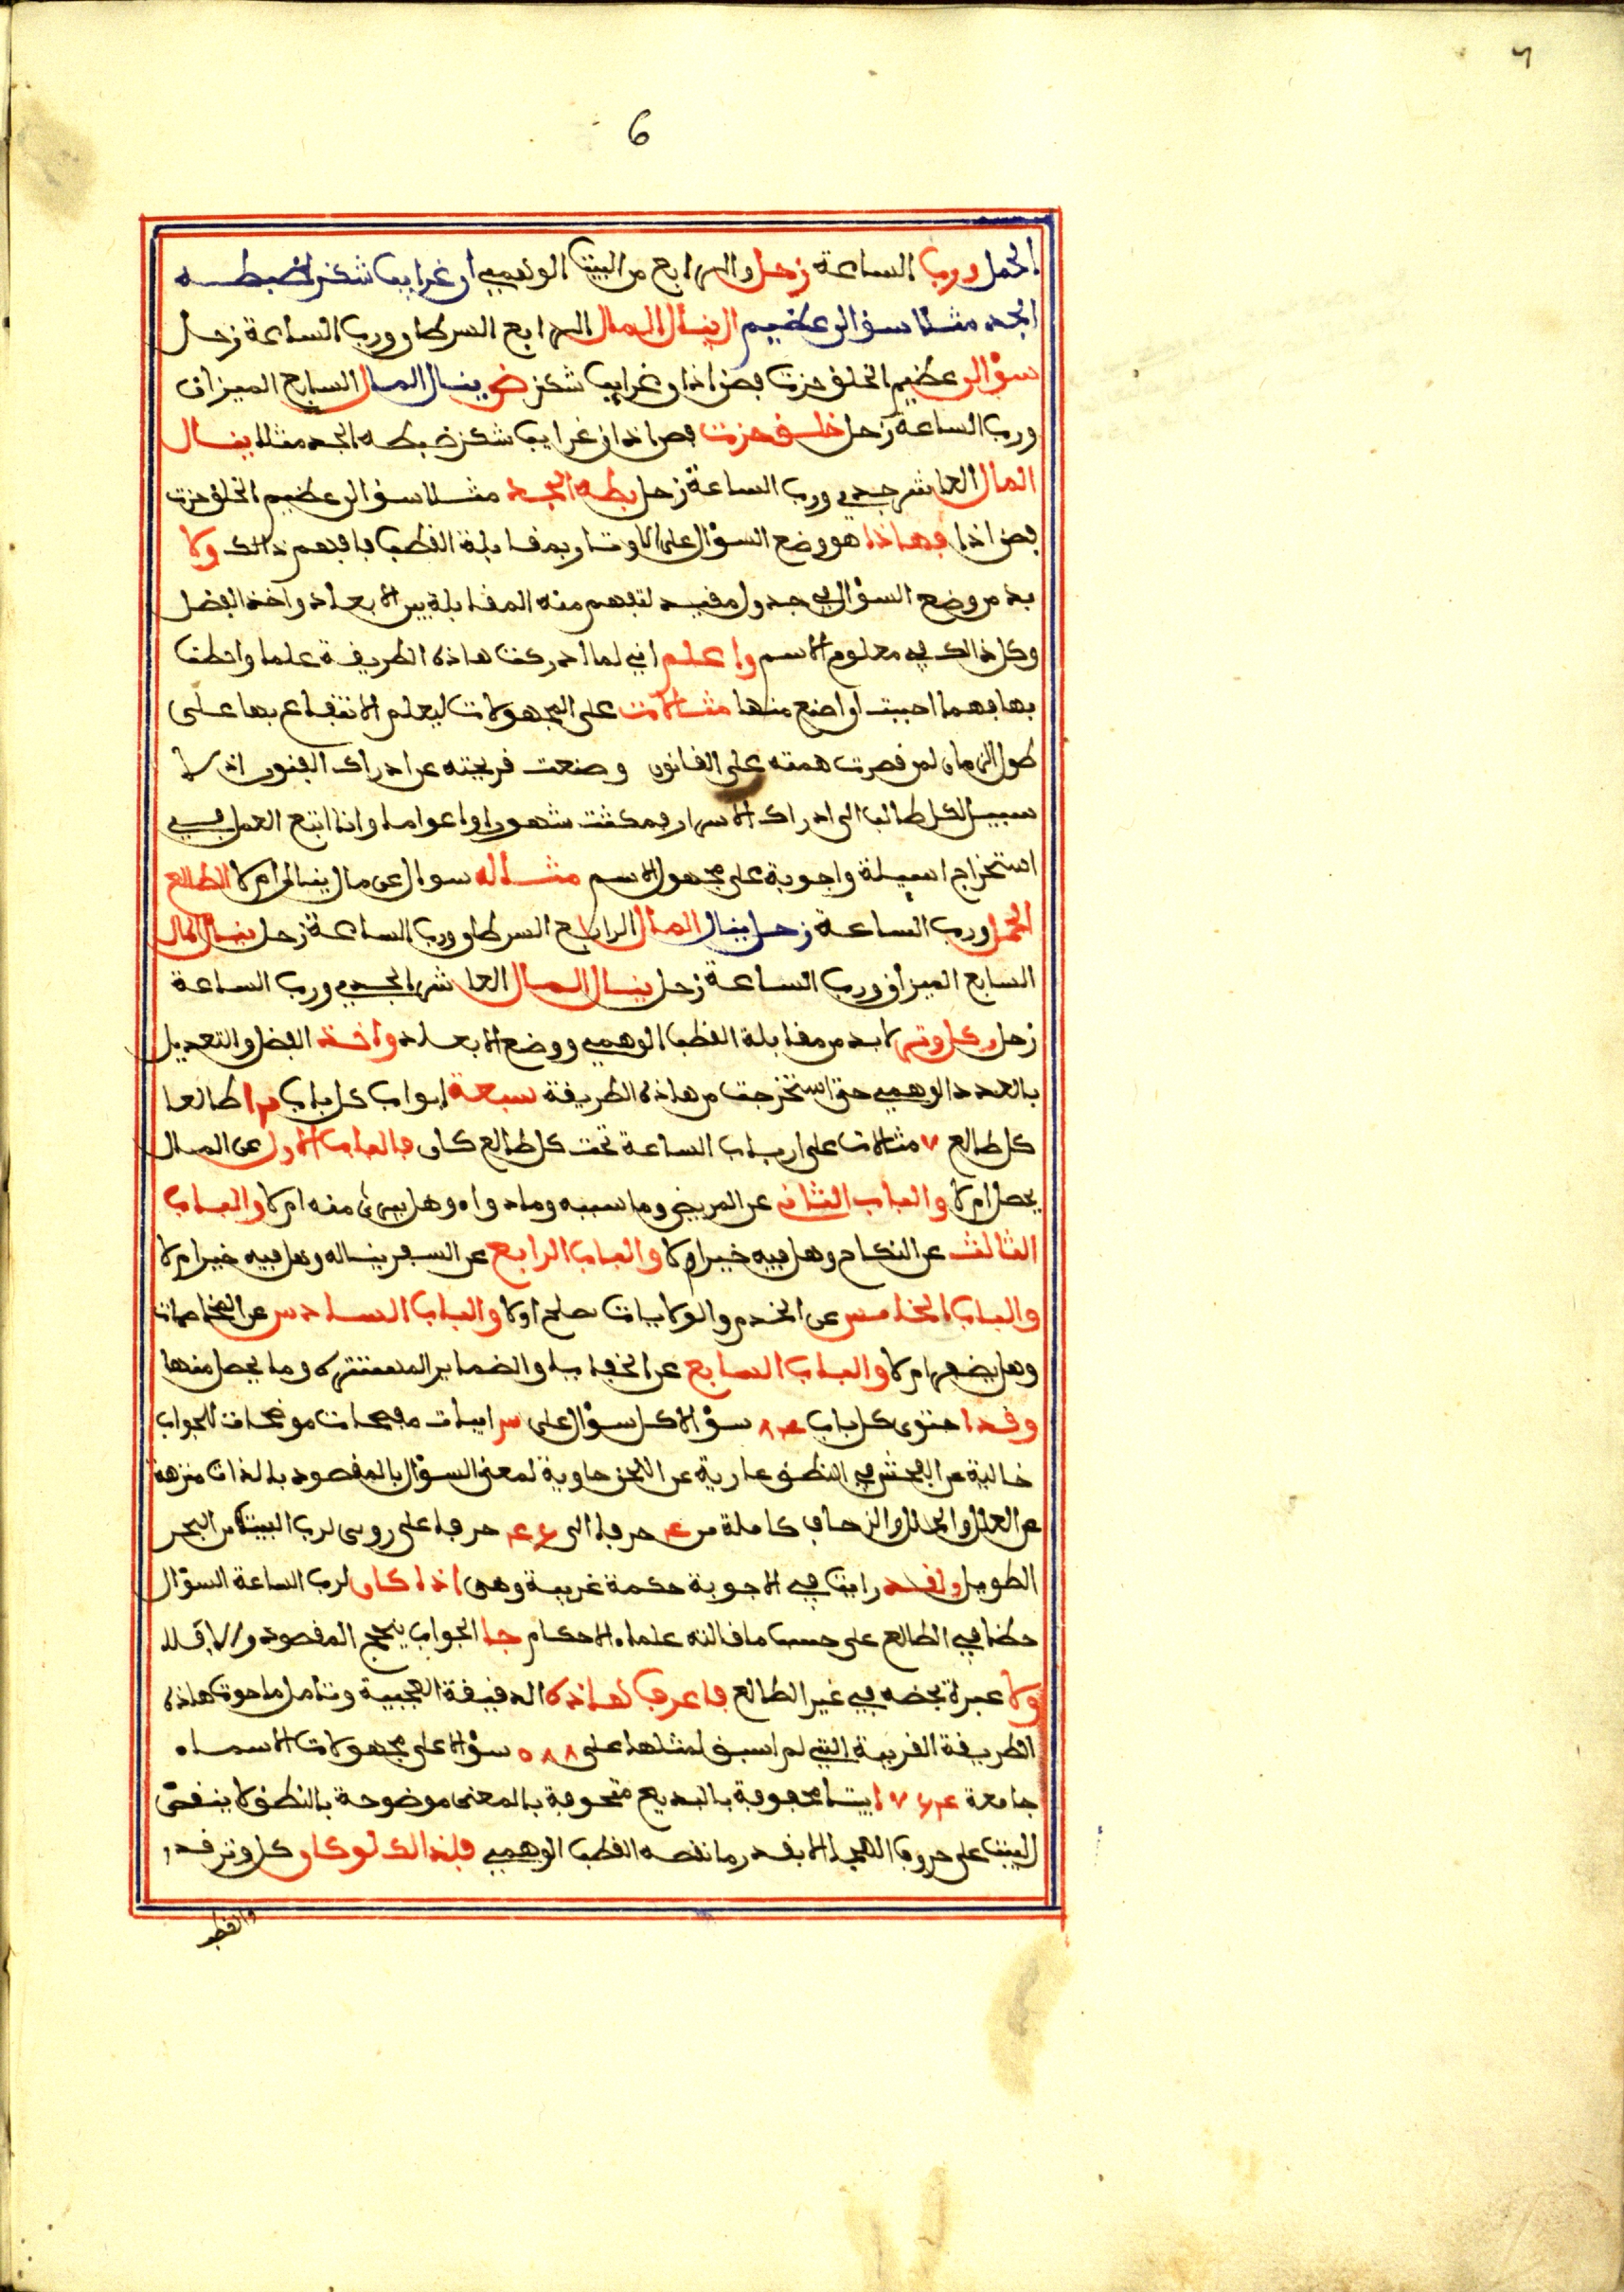 6
الحمل ورب الساعة زحل والرابع من البيت الوهمي اذن غرايب شك ضبطه
الجد مثلا سؤال عظيم ال ينال المال الرابع السرطان ورب الساعة زحل
سؤال عظيم الخلق حزت فصن اذا وغرايب شك ض ينال المال السابع الميزان
ورب الساعة زحل خلق حزت فصن اذن غرايب شك ضبطه الجد مثلا ينال
المال العاشر جدي ورب الساعة زحل بطه الجد مثلا سؤال عظيم الخلق حزت
فصن اذا فهاذا هو وضع السؤال على الاوتار بمقابلة القطب فافهم ذالك ولا
بد من وضع السؤال في جدول مفيد لتفهم منه المقابلة بين الابعاد واخذ الفضل
وكل ذالك في معلوم الاسم واعلم اني لما ادركت هاذه الطريقة علما واحطت
بها فهما احببت ان اضع منها مثالات على المجهولات ليعلم الانتفاع بها على
طول الزمان لمن قصرت همته على القانون وضعت قريحته عن ادراك الفنون اذ لا
سبيل لكل طالب الى ادراك الاسرار فمكثت شهورا واعواما وانا اتبع العمل في
استخراج اسيلة واجوبة على مجهول الاسم مثاله سوال عن مال ينال ام لا الطالع
الحمل ورب الساعة زحل ينال المال الرابع السرطان ورب الساعة زحل ينال المال
السابع الميزان ورب الساعة زحل ينال المال العاشر الجدي ورب الساعة
زحل وكل وتر لا بد من مقابلة القطب الوهمي ووضع الابعاد واخذ الفضل والتعديل
بالعدد الوهمي حتى استخرجت من هاذه الطريقة سبعة ابواب كل باب طالعا
كل طالع ٧ مثالات على ارباب الساعة تحت كل طالع كان فالباب الاول عن المال
يحصل ام لا والباب الثاني عن المريض وما سببه وما دواه وهل يبرئ منه ام لا والباب
الثالث عن النكاح وهل فيه خير ام لا والباب الرابع عن السفر يناله وهل فيه خير ام لا
والباب الخامس عن الخدم والولايات صلح اولا والباب السادس عن المخاصمات
وهل يضفر ام لا والباب السابع عن الخفايا والضماير المستترة وما يحصل منها
وقد احتوى كل باب ٨٤ سؤالا كل سؤال على ابيات مفصحات موضحات للجواب
خالية عن الفحش في النطق عارية عن اللحن حاوية لمعنى السؤال بالمقصود بالذات منزهة
عن العلل والخلل والزحاف كاملة من حرفا الى حرفا على روى لرب البيت من البحر
الطويل ولقد رايت في الاجوبة حكمة غريبة وهي اذا كان لرب الساعة السؤال
حضا في الطالع على حسب ما قالته علماء الاحكام جا الجواب بنجح المقصود والا فلا
ولا عبرة بحضه في غير الطالع فاعرف لهاذه الدقيقة العجيبة وتامل ما حوت هاذه
الطريقة الغريبة التي لم اسبق لمثلها على ٥٨٨ سؤالا على مجهولات الاسماء
جامعة بيتا محفوفة بالبديع متحوفة بالمعنى موضوحة بالنطق لا ينقص
البيت على حروف الهجاء الا بقدر ما نقصه القطب الوهمي فلذالك لو كان كل وتر قدر
والقطب